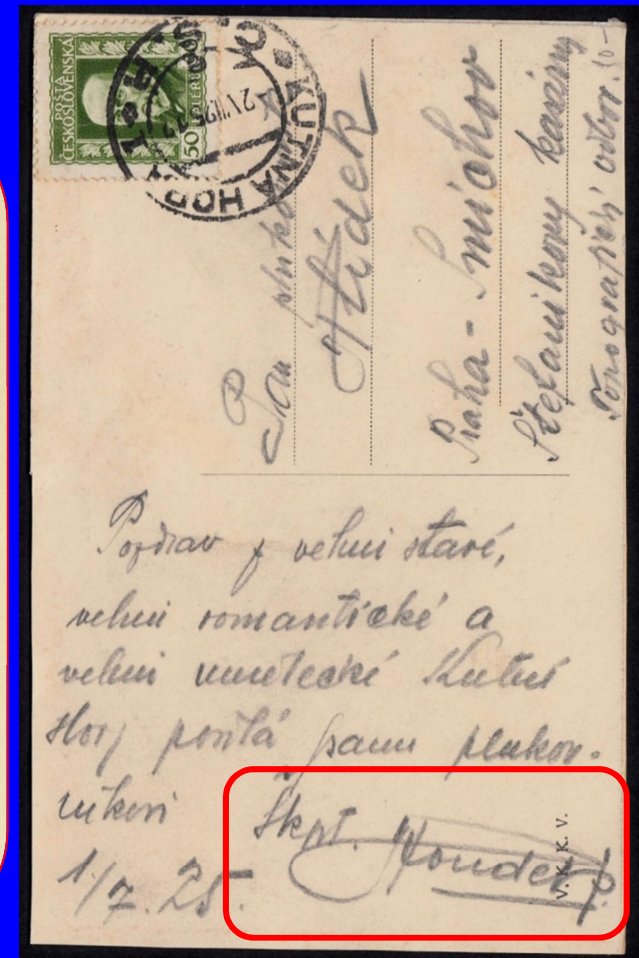 POŠTA
ČESKOSLOVENSKÁ
50
KUTNÁ HORA
Č.S.R.
Pan
Hídek
Praha - Smíchov
Štefanikovy kasárny
Pozdrav z velmi staré,
velmi romantické a
velmi umělecké Kutné
Hory posílá panu plukov-
níkovi Škpt. Houdek
1/7. 25.
V. K. K. V.